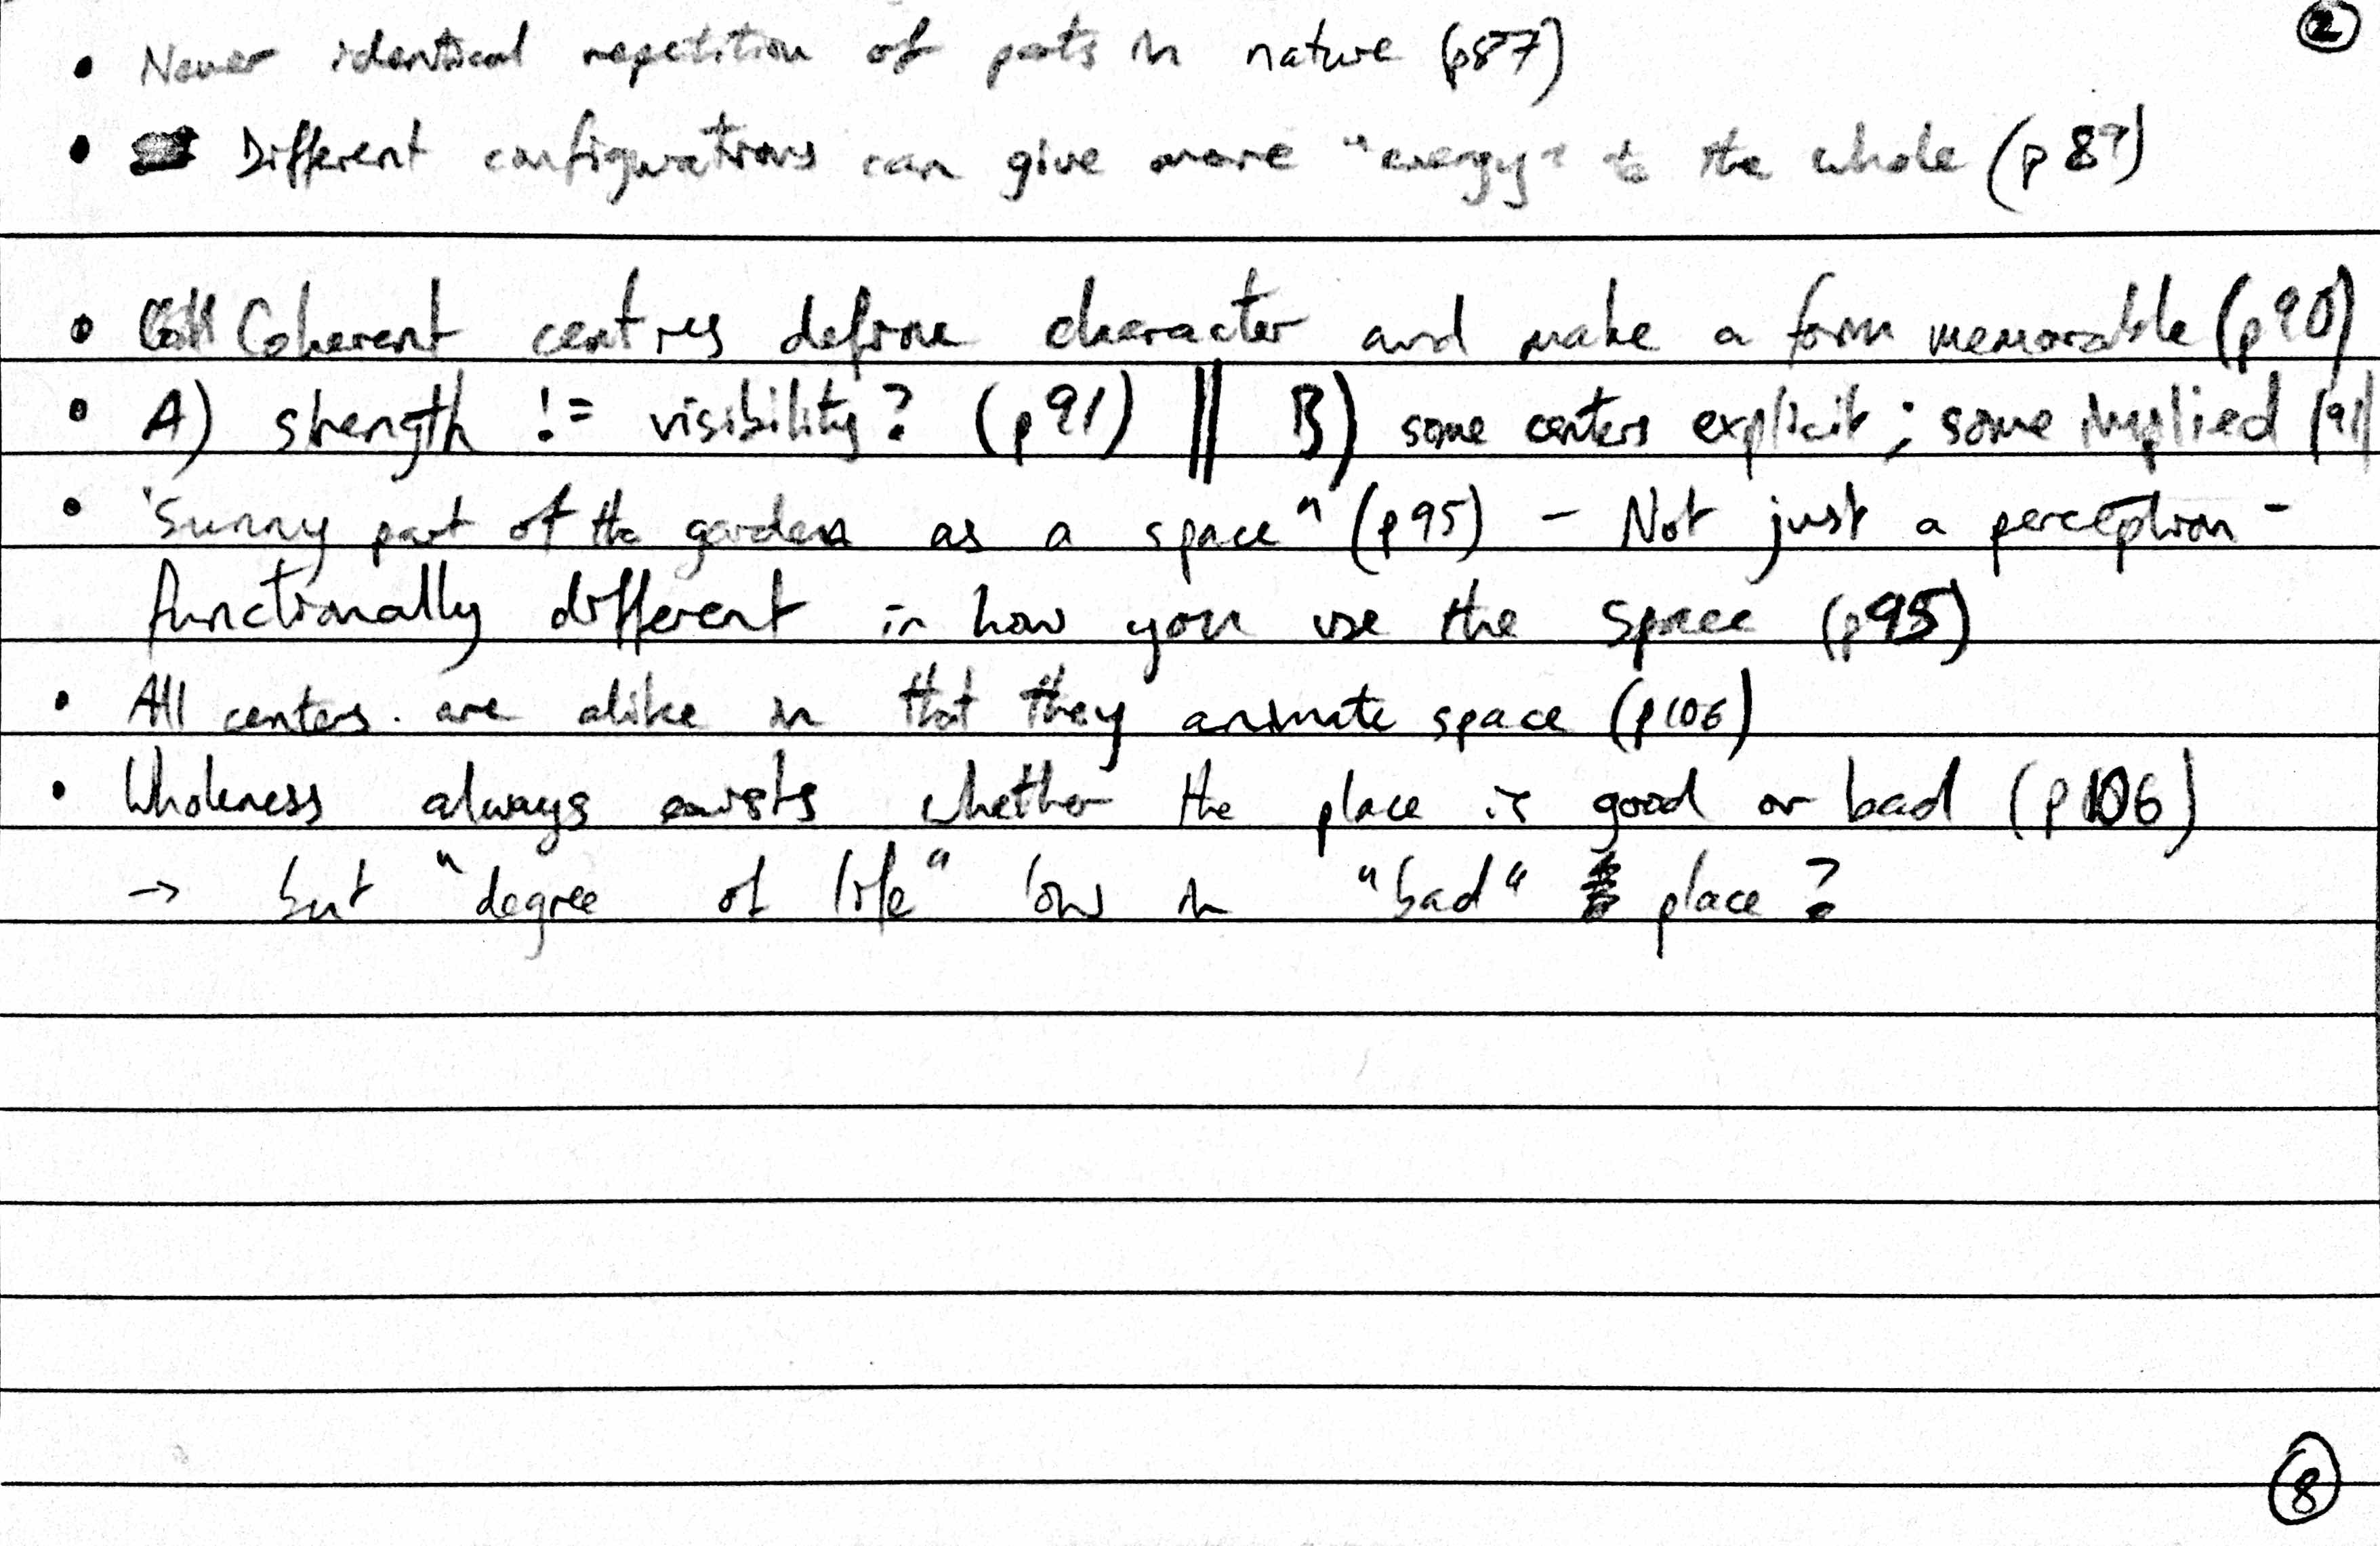 ②
• Never identical repetition of parts in nature (p87)
• Different configurations can give more "energy" to the whole (p 8?)
• Coherent centres define character and make a form memorable (p90)
• A) strength != visibility? (p91) || B) some centers explicit; some implied (91)
• "Sunny part of the garden as a space" (p95) - Not just a perception -
functionally different in how you use the space (p95)
• All centers are alike in that they animate space (p106)
• Wholeness always exists whether the place is good or bad (p106)
→ but "degree of life" low in "bad" place?
⑧